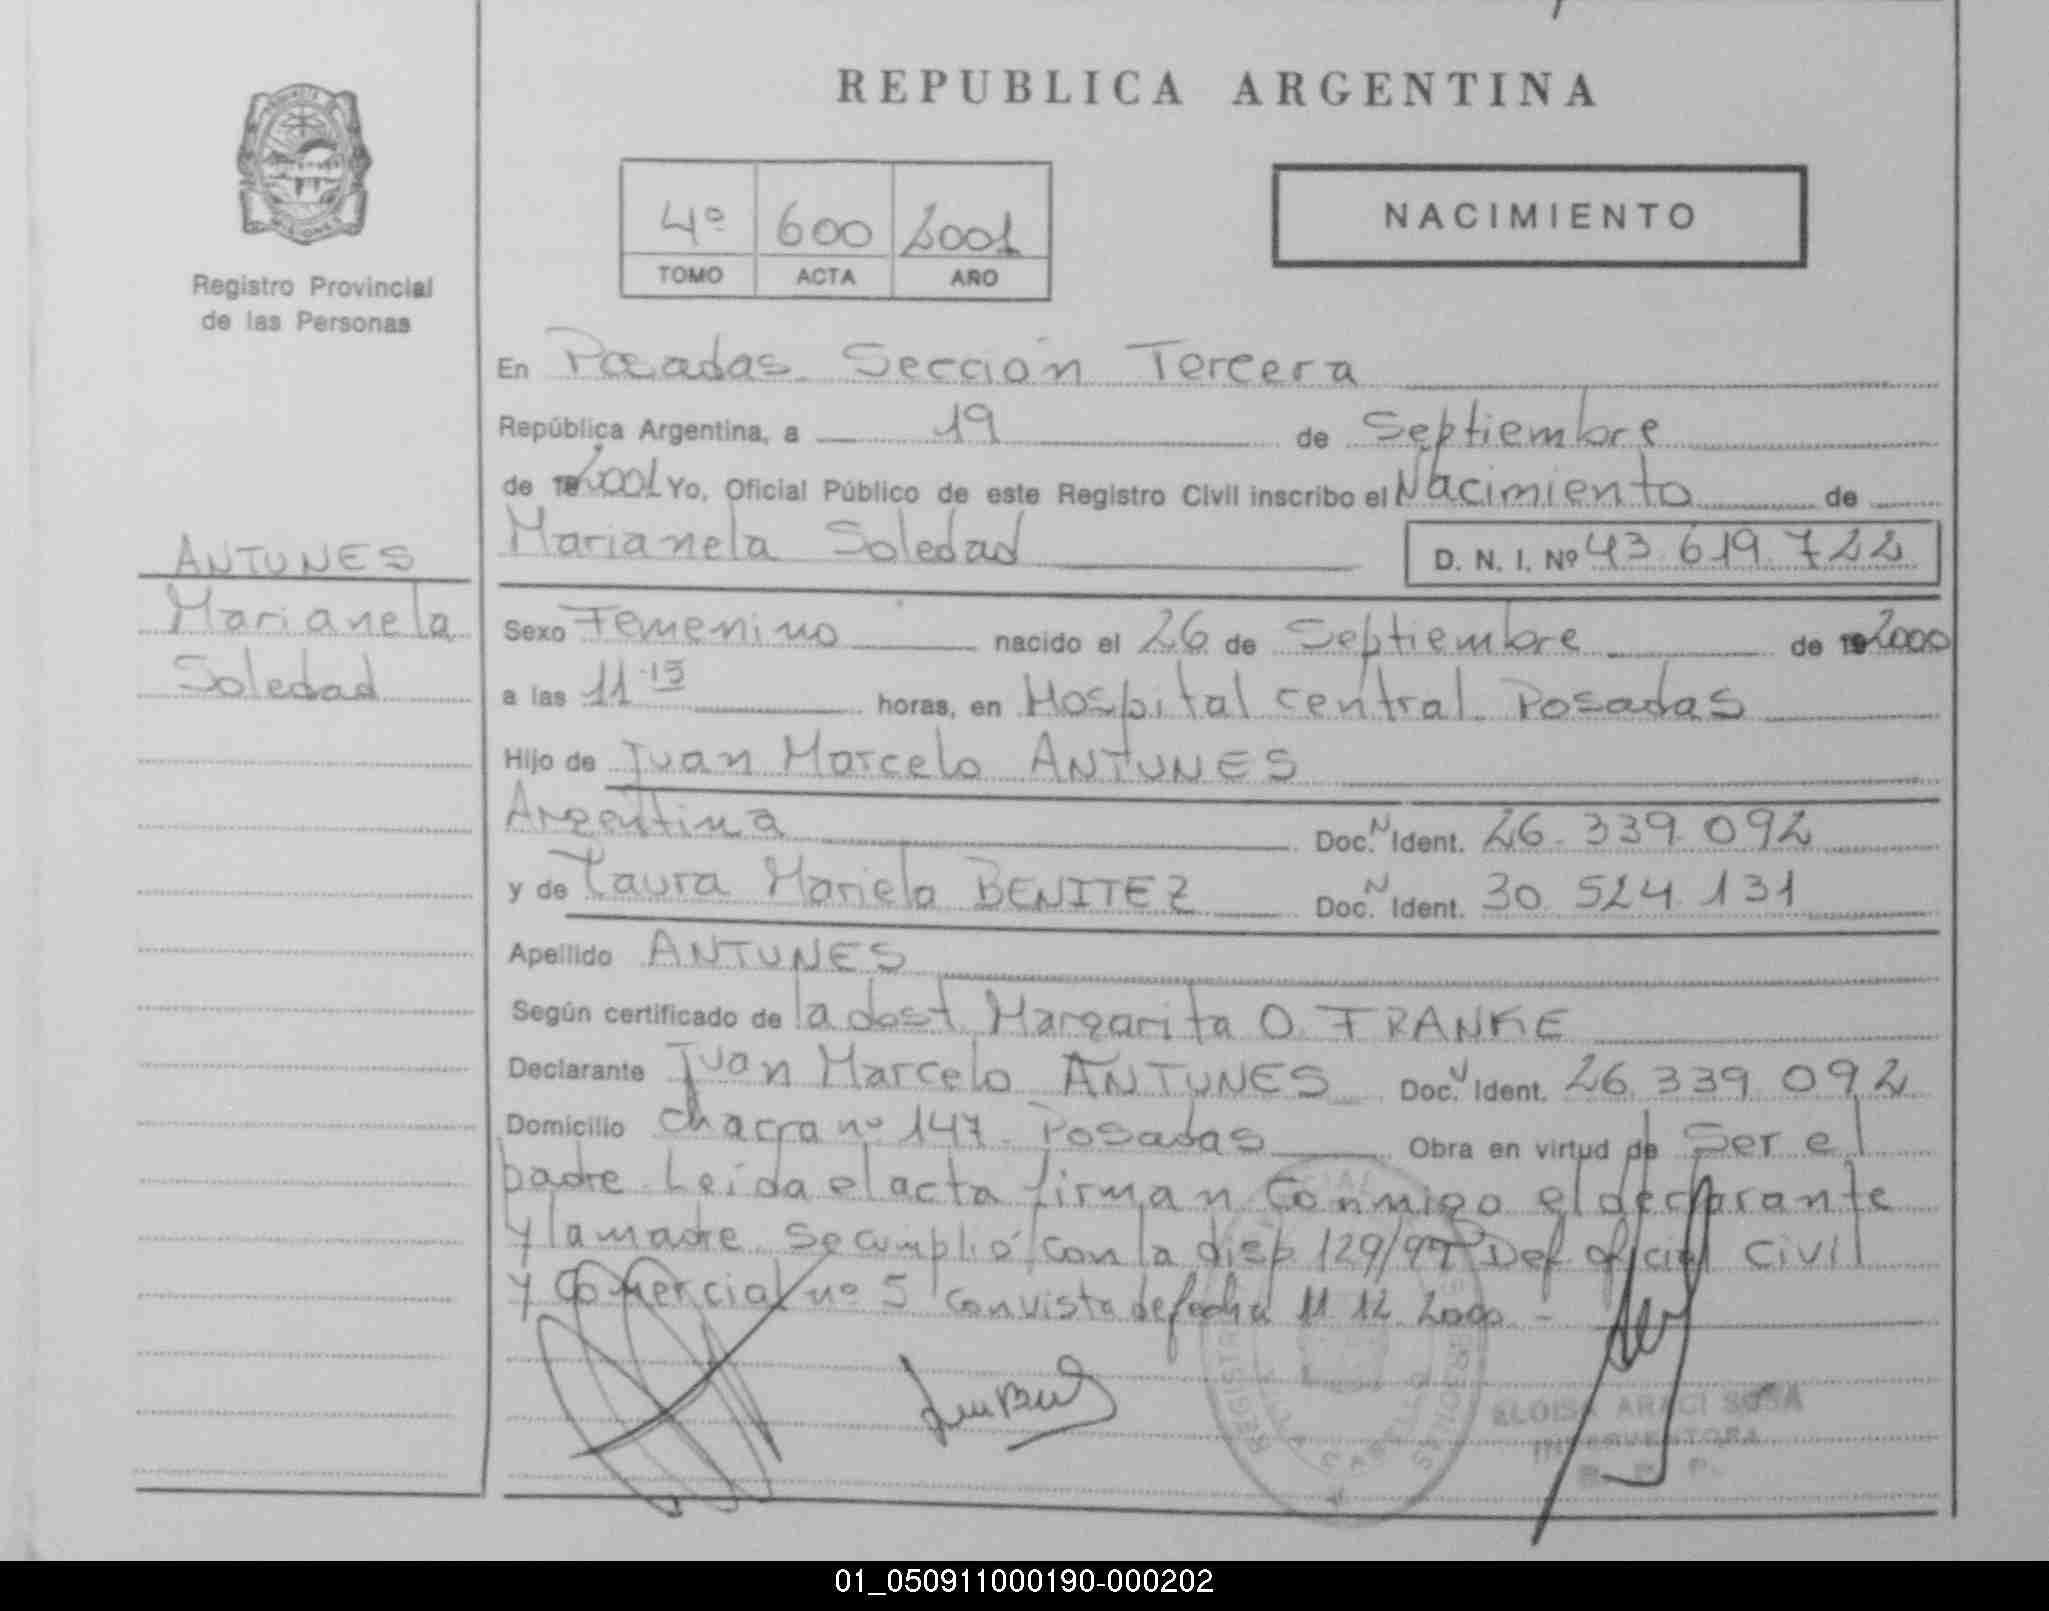 REPUBLICA ARGENTINA
4º 600 2001
TOMO ACTA AÑO
NACIMIENTO
Registro Provincial
de las Personas
ANTUNES
Marianela
Soledad
En Posadas Sección Tercera
República Argentina, a 19 de Septiembre
de 2001 Yo, Oficial Público de este Registro Civil inscribo el Nacimiento de
Marianela Soledad D. N. I. Nº 43.619.722
Sexo Femenino nacido el 26 de Septiembre de 2000
a las 11.15 horas, en Hospital central Posadas
Hijo de Juan Marcelo ANTUNES
Argentina Doc. N Ident. 26.339.092
y de Laura Mariela BENITEZ Doc. N Ident. 30.524.131
Apellido ANTUNES
Según certificado de la dost. Margarita O. FRANKE
Declarante Juan Marcelo ANTUNES Doc. Ident. 26.339.092
Domicilio Chacra nº 147 Posadas Obra en virtud de Ser el
padre Leída el acta firman conmigo el declarante
y la madre Se cumplió con la disp. 129/97 Def oficial Civil
y Comercial nº 5 con vista de fecha 11.12.2000.-
ELOISA ARACI SOSA
INTERVENTORA
R. P. P.
01_050911000190-000202